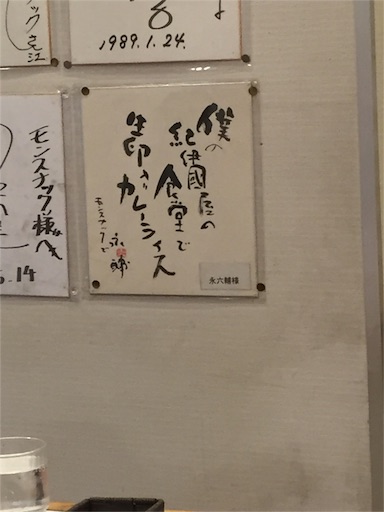 ック
1989.1.24.
僕の
紀伊國屋の
食堂で
生卵入りカレーライス
モンスナックで
永六輔
永六輔様
モンスナック様江
.14